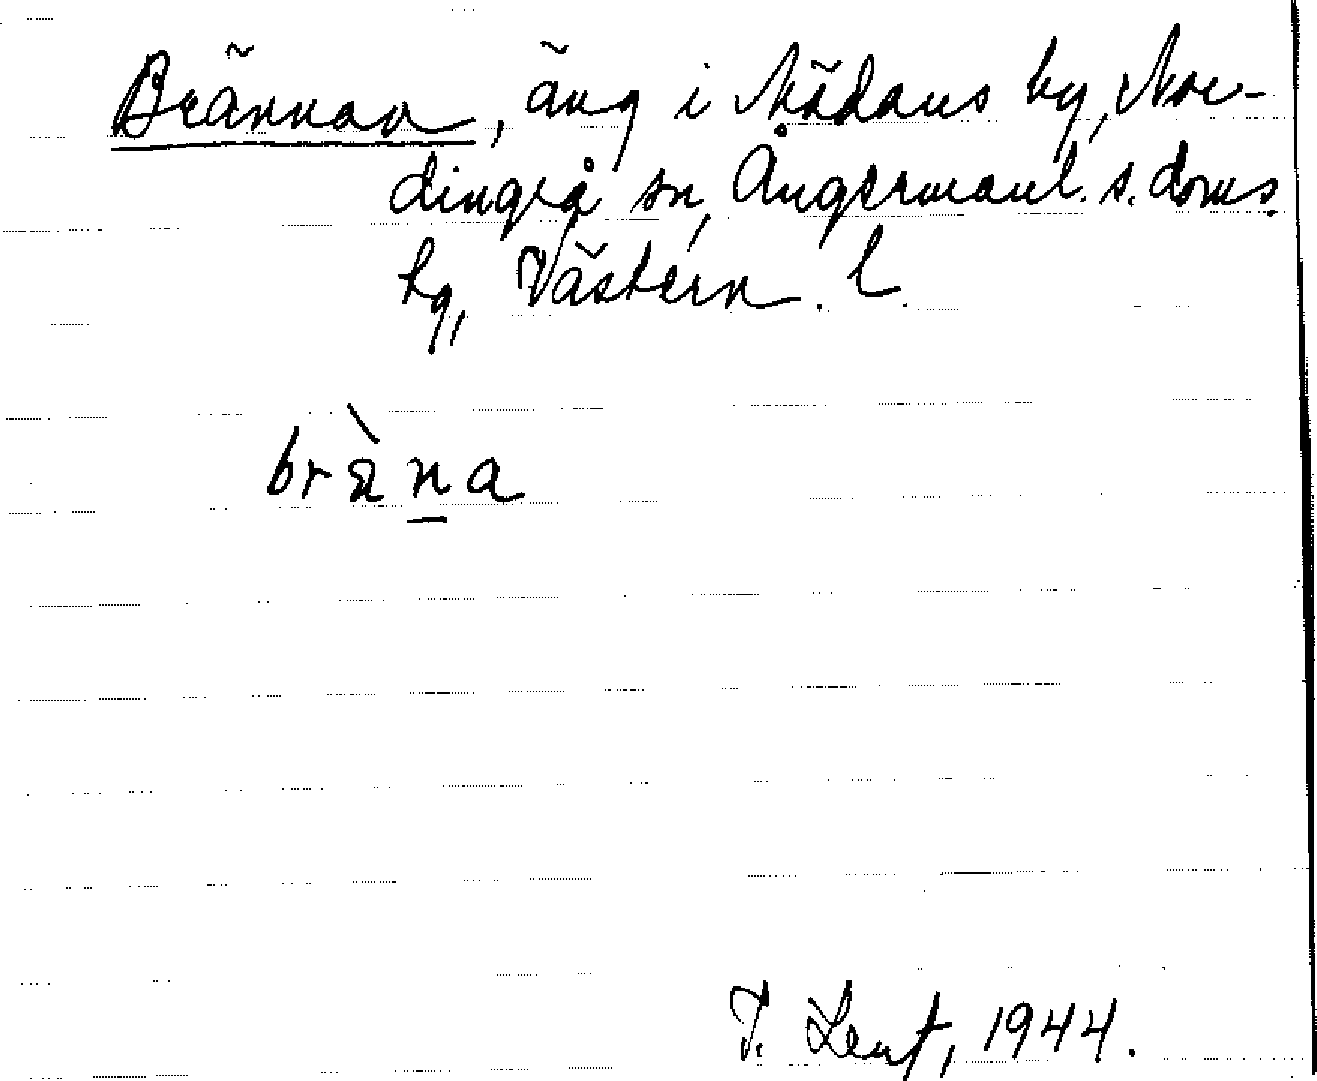 Brännan, äng i Mädans by, Nor-
dingrå sn, Ångermanl. s. doms.
hg, Västern. l.
bràna
T. Lent, 1944.